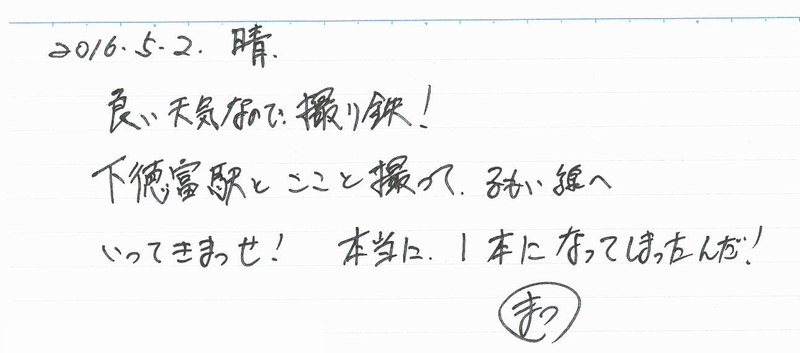 2016.5.2. 晴.
良い天気なので、撮り鉄!
下徳富駅とここと撮って、るもい線へ
いってきまっせ! 本当に、1本になってしまったんだ!
まつ